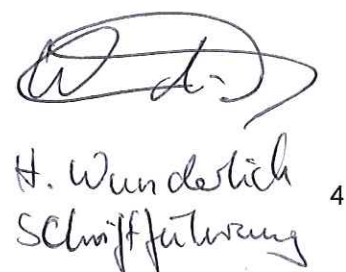 H. Wunderlich
4
Schriftführung